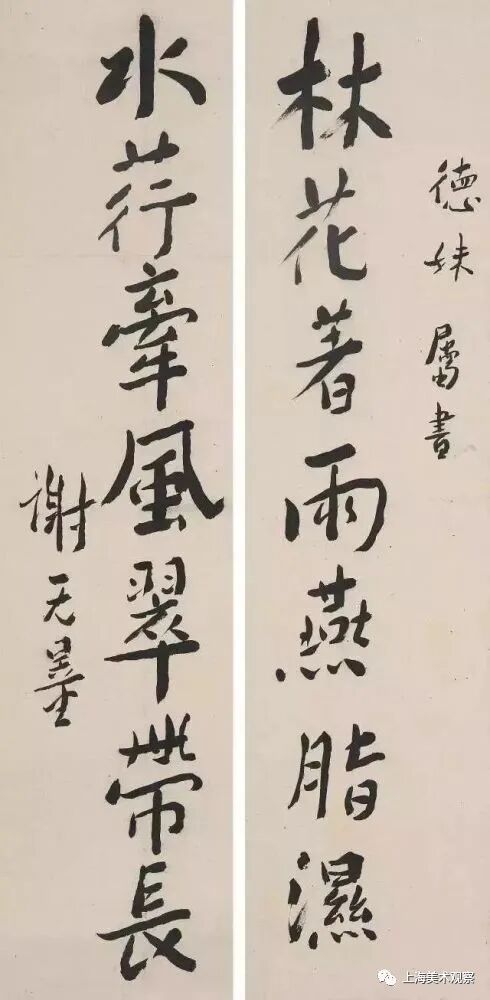 德妹属書
林花著雨燕脂濕
水荇牽風翠帶長
谢无量
上海美术观察